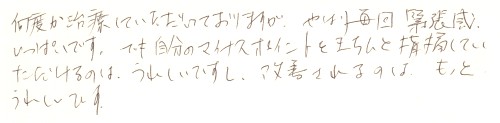 何度か治療していただいておりますが、やはり毎回緊張感
いっぱいです。でも自分のマイナスポイントをきちんと指摘してい
ただけるのは、うれしいですし、改善されるのは、もっと
うれしいです。